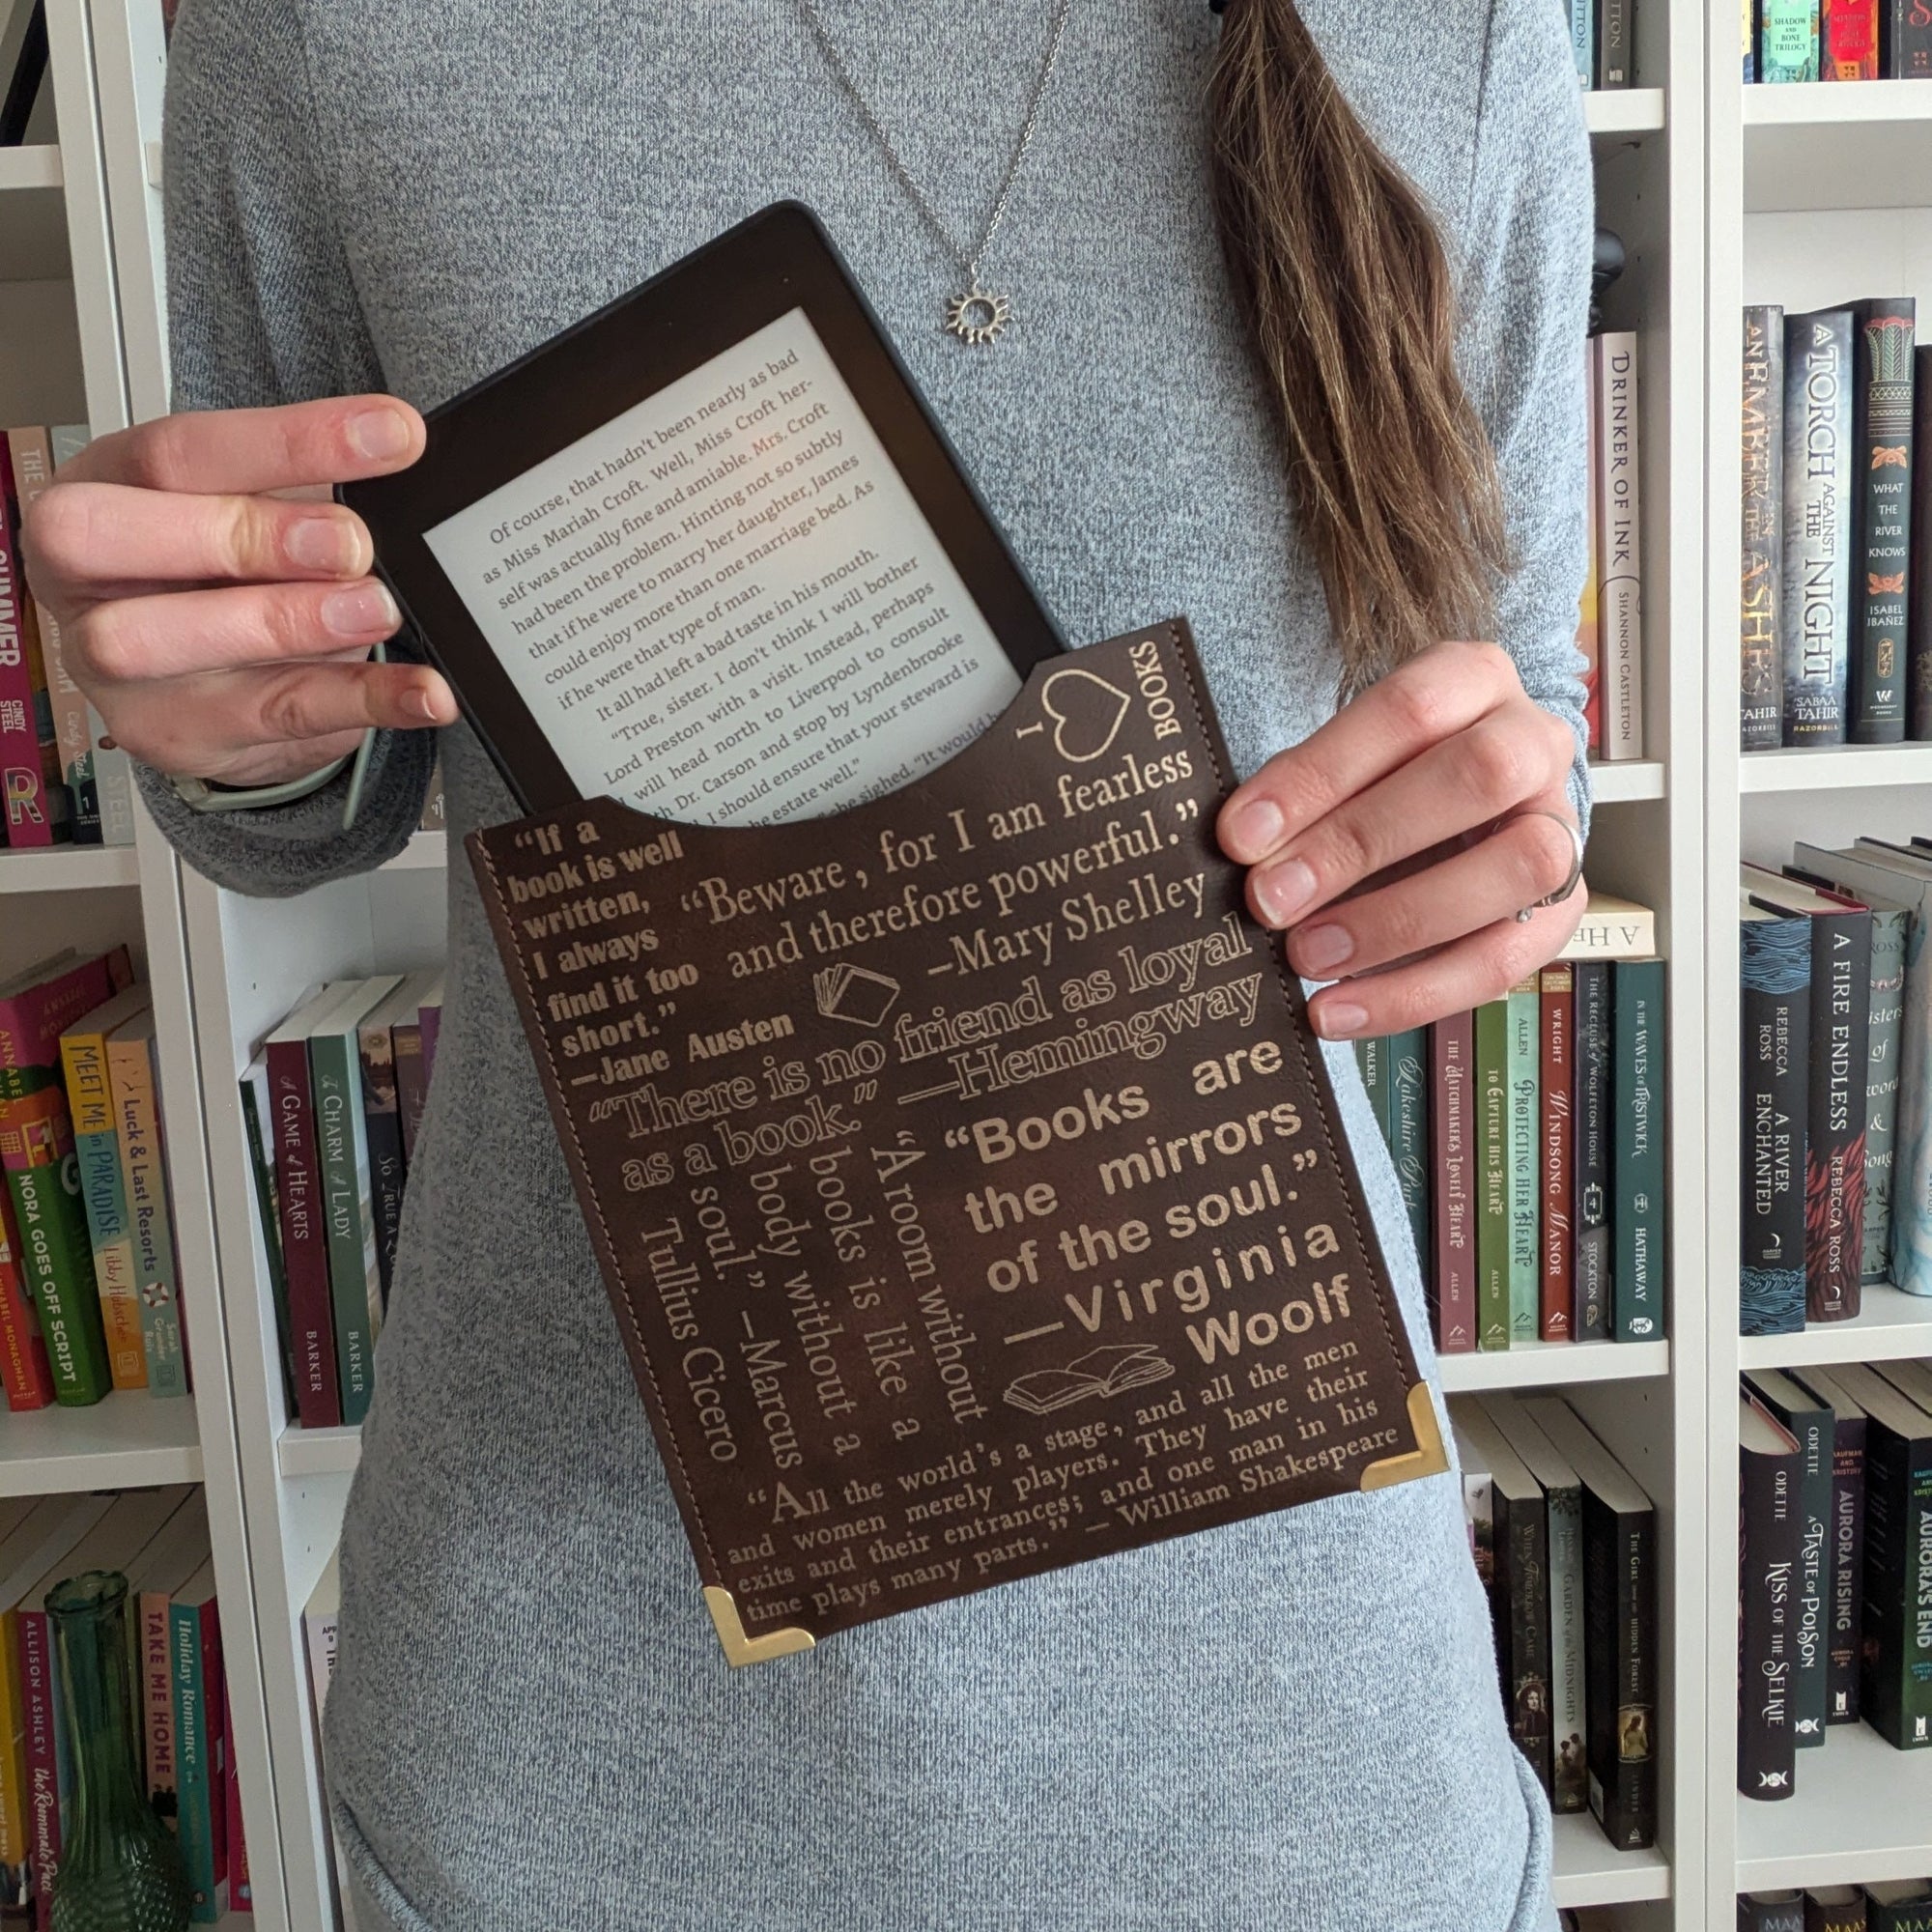 Of course, that hadn't been nearly as bad
as Miss Mariah Croft. Well, Miss Croft her-
self was actually fine and amiable. Mrs. Croft
had been the problem. Hinting not so subtly
that if he were to marry her daughter, James
could enjoy more than one marriage bed. As
if he were that type of man.
It all had left a bad taste in his mouth.
"True, sister. I don't think I will bother
Lord Preston with a visit. Instead, perhaps
will head north to Liverpool to consult
Dr. Carson and stop by Lyndenbrooke
I should ensure that your steward is
estate well."
he sighed. "It would
I
BOOKS
"If a
book is well
written,
I always
find it too
short."
—Jane Austen
"Beware, for I am fearless
and therefore powerful."
–Mary Shelley
"There is no friend as loyal
as a book." —Hemingway
"A room without
books is like a
body without a
soul." –Marcus
Tullius Cicero
"Books are
the mirrors
of the soul."
—Virginia
Woolf
"All the world's a stage, and all the men
and women merely players. They have their
exits and their entrances; and one man in his
time plays many parts." – William Shakespeare
SUMMER
CINDY
STEEL
STEEL
MEET ME in PARADISE
Libby Hubscher
Luck & Last Resorts
Sarah
Grunder
Ruiz
NORA GOES OFF SCRIPT
ANNABEL MONAGHAN
A GAME of HEARTS
BARKER
A CHARM of A LADY
BARKER
ALLISON ASHLEY the Roommate Pact
TAKE ME HOME
Holiday Romance
SHADOW
AND
BONE
TRILOGY
DRINKER OF INK
SHANNON CASTLETON
AN EMBER IN THE ASHES
TAHIR
A TORCH AGAINST THE NIGHT
SABAA
TAHIR
RAZORBILL
WHAT
THE
RIVER
KNOWS
ISABEL
IBAÑEZ
WALKER
THE MATCHMAKER'S LONELY HEART
ALLEN
TO CAPTURE HIS HEART
ALLEN
ALLEN
PROTECTING HER HEART
WRIGHT
WINDSONG MANOR
THE RECLUSE OF WOLFETON HOUSE
STOCKTON
IN THE WAVES OF TRISTWICK
HATHAWAY
REBECCA
ROSS
A RIVER
ENCHANTED
A FIRE ENDLESS
REBECCA ROSS
ODETTE
KISS OF THE SELKIE
ODETTE
A TASTE OF POISON
KAUFMAN
AND
KRISTOFF
AURORA RISING
AURORA'S END
THE GIRL FROM THE HIDDEN FOREST